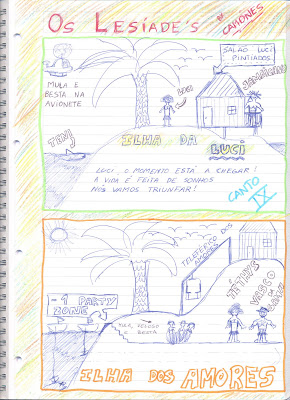 OS LESÍADE'S
DE CAMÕNES
SALÃO LUCI
PINTIADOS
MULA E
BESTA NA
AVIONETE
LUCI
JASMACINO
TEMJ
ILHA DA
LUCI
LUCI, O MOMENTO ESTÁ A CHEGAR!
A VIDA É FEITA DE SONHOS
NÓS VAMOS TRIUNFAR!
CANTO
IX
TELEFÉRICO DOS
AMORES
-1 PARTY
ZONE
TÉTHYS
VASCO
DA GAMA
MULA, VELOSO
E BESTA
ILHA DOS AMORES